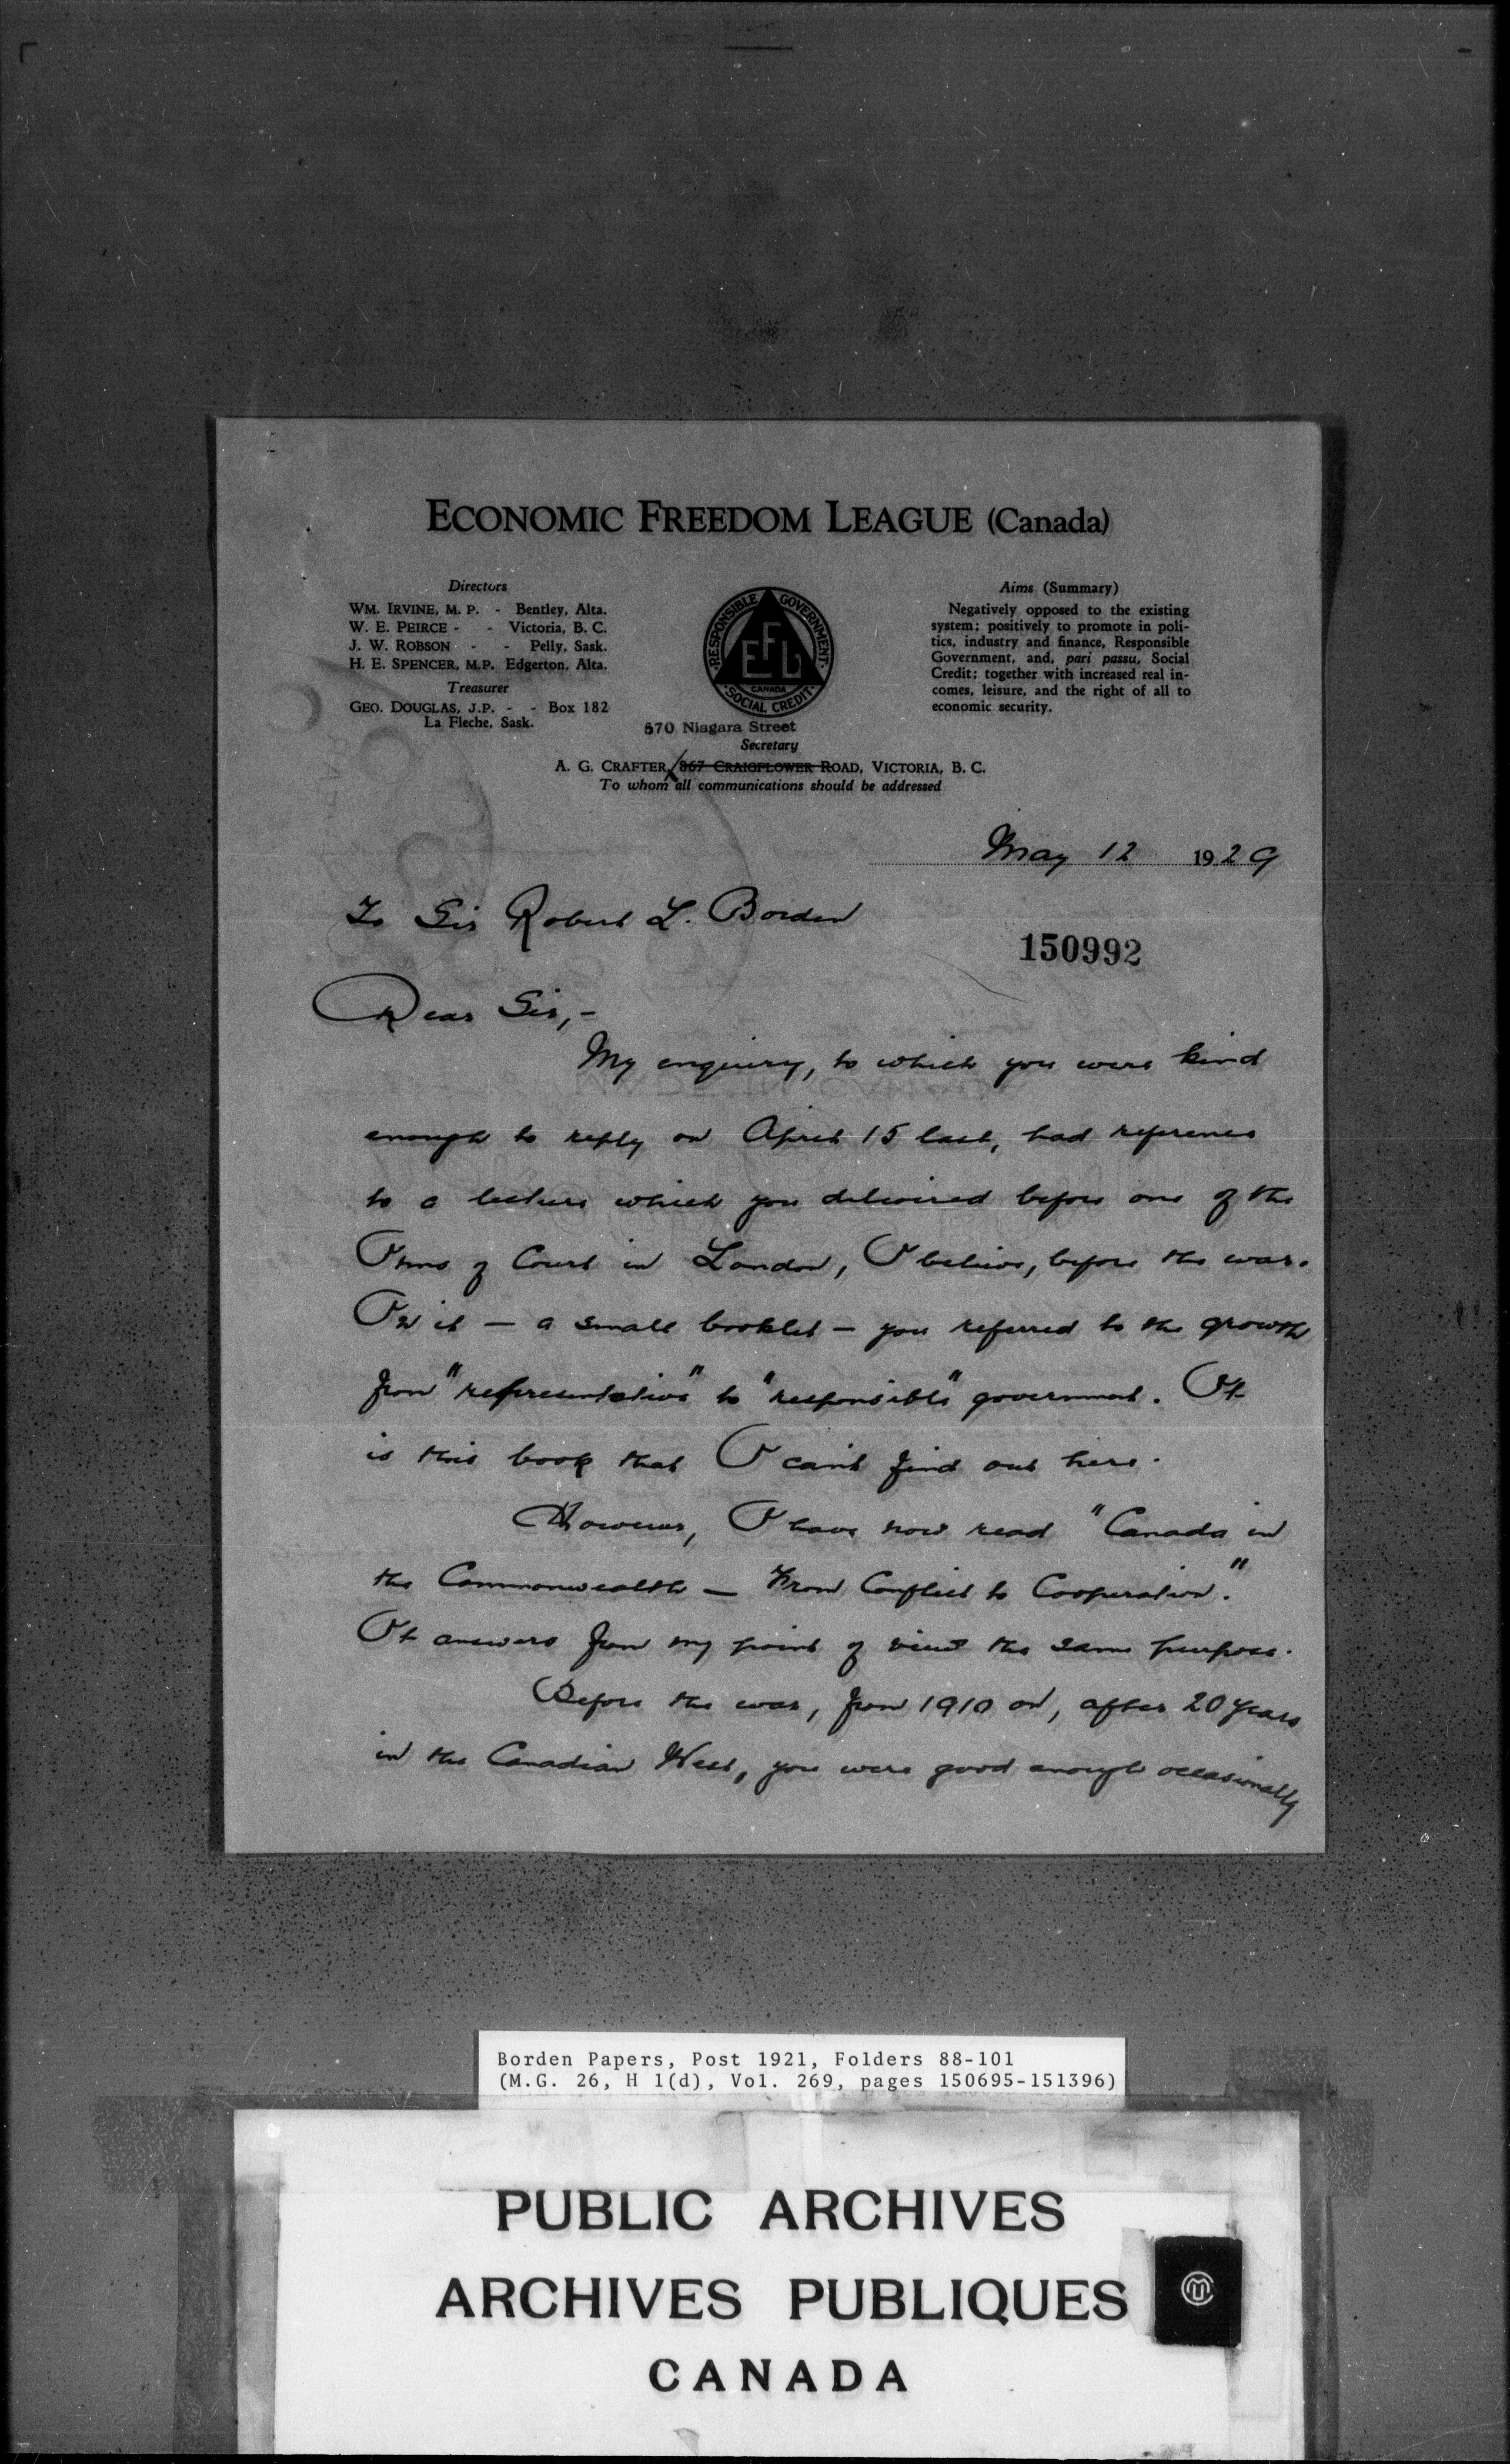 ECONOMIC FREEDOM LEAGUE (Canada)
Directors
WM. IRVINE, M. P. - Bentley, Alta.
W. E. PEIRCE - - Victoria, B. C.
J. W. ROBSON - - Pelly, Sask.
H. E. SPENCER, M.P. Edgerton, Alta.
Treasurer
GEO. DOUGLAS, J.P. - - Box 182
La Fleche, Sask.
RESPONSIBLE GOVERNMENT
EFL
CANADA
SOCIAL CREDIT
Aims (Summary)
Negatively opposed to the existing
system; positively to promote in poli-
tics, industry and finance, Responsible
Government, and, pari passu, Social
Credit; together with increased real in-
comes, leisure, and the right of all to
economic security.
570 Niagara Street
Secretary
A. G. CRAFTER, 867 CRAIGFLOWER ROAD, VICTORIA, B. C.
To whom all communications should be addressed
May 12 1929
To Sir Robert L. Borden
150992
Dear Sir,-
My enquiry, to which you were kind
enough to reply on April 15 last, had reference
to a lecture which you delivered before one of the
Inns of Court in London, I believe, before the war.
In it - a small booklet - you referred to the growth
from "representative" to "responsible" government. It
is this book that I can't find out here.
However, I have now read "Canada in
the Commonwealth - From Conflict to Cooperation."
It answers from my point of view the same purpose.
Before the war, from 1910 on, after 20 years
in the Canadian West, you were good enough occasionally
Borden Papers, Post 1921, Folders 88-101
(M.G. 26, H 1(d), Vol. 269, pages 150695-151396)
PUBLIC ARCHIVES
ARCHIVES PUBLIQUES
CANADA